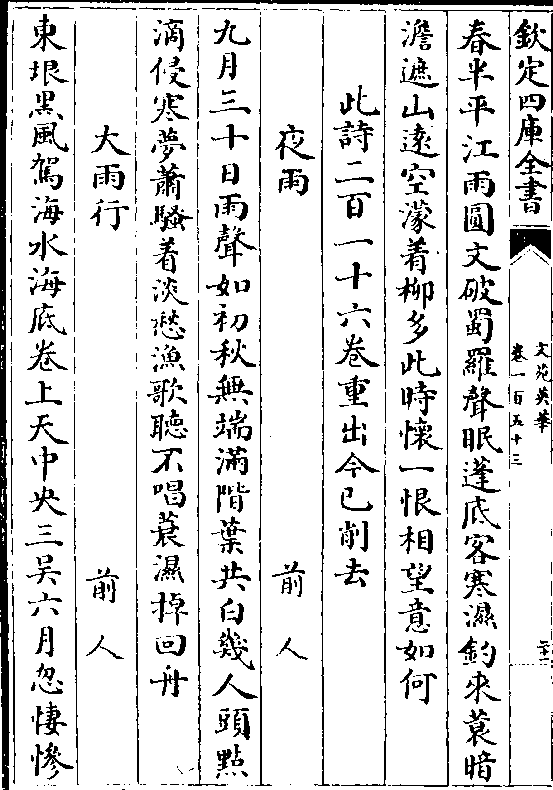 欽定四庫全書
文苑英華
卷一百五十三
二十二
春半平江雨圓文破蜀羅聲眠蓬底客寒濕釣來蓑暗
澹遮山遠空濛着柳多此時懷一恨相望意如何
此詩二百一十六卷重出今已削去
夜雨 前人
九月三十日雨聲如初秋無端滿階葉共白幾人頭點
滴侵寒夢蕭騷着淡愁漁歌聽不唱蓑濕棹回舟
大雨行 前人
東垠黑風駕海水海底卷上天中央三吳六月忽悽慘